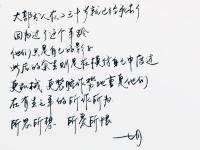 大部分人在二三十岁就已经死去了
因为过了这个年龄
他们只是自己的影子
此后的余生则是在模仿自己中度过
更机械，更装腔作势地重复他们
在有生之年的所作所为
所思所想，所爱所恨